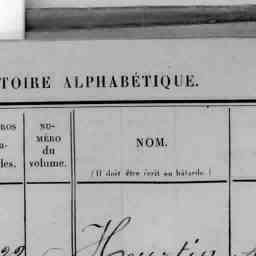 TOIRE ALPHABÉTIQUE.
ROS
a-
les.
NU-
MÉRO
du
volume.
NOM.
(Il doit être écrit en bâtarde.)
22
Hourtin